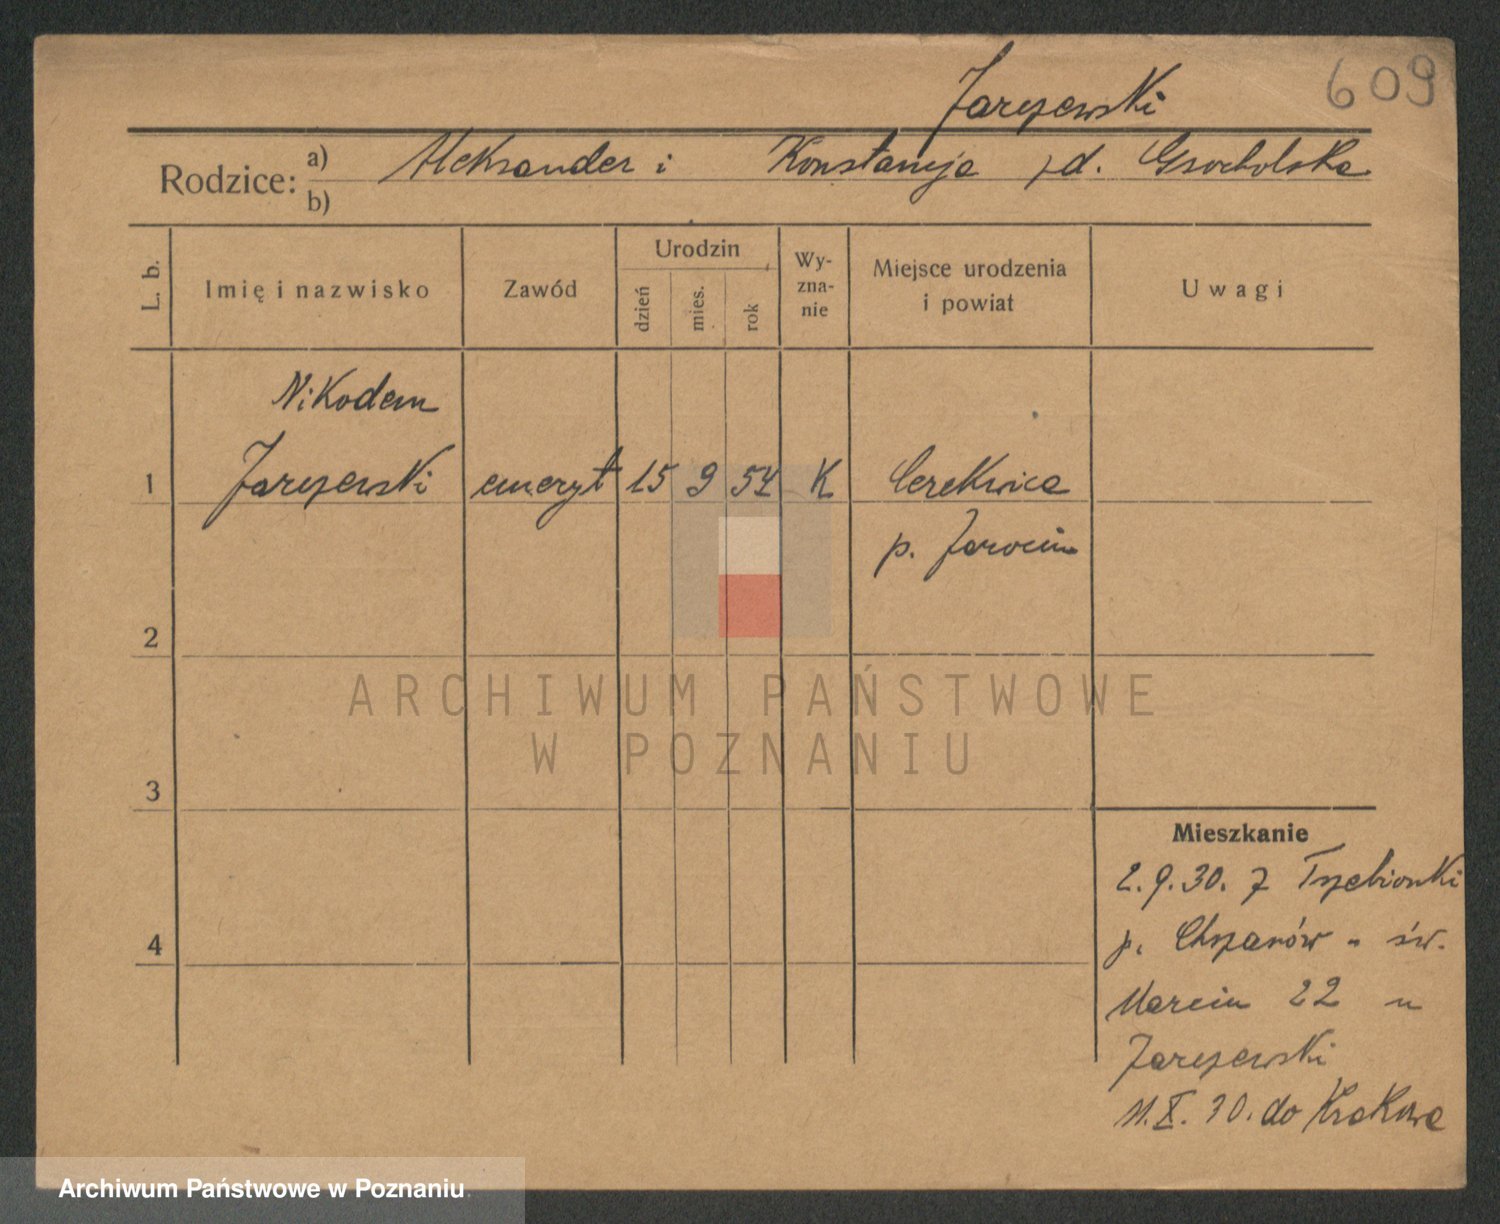 609
Jarczewski
Rodzice: a) Aleksander i Konstancja z d. Grocholska
b)
L. b. Imię i nazwisko Zawód Urodzin dzień mies. rok Wy-zna-nie Miejsce urodzenia i powiat Uwagi
Nikodem
1 Jarczewski emeryt 15 9 54 K Cerekwica
p. Jarocin
2
ARCHIWUM PAŃSTWOWE
W POZNANIU
3
Mieszkanie
2.9.30. z Trzebionki
p. Chrzanów - św.
4
Marcin 22 u
Jarczewski
11.X.30. do Krakowa
Archiwum Państwowe w Poznaniu